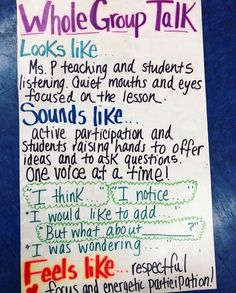 Whole Group Talk
Looks like...
Ms. P teaching and students
listening. Quiet mouths and eyes
focused on the lesson.
Sounds like...
active participation and
students raising hands to offer
ideas and to ask questions.
One voice at a time!
"I think... "I notice...
"I would like to add...
"But what about ______?"
"I was wondering..."
Feels like... respectful
focus and energetic participation!